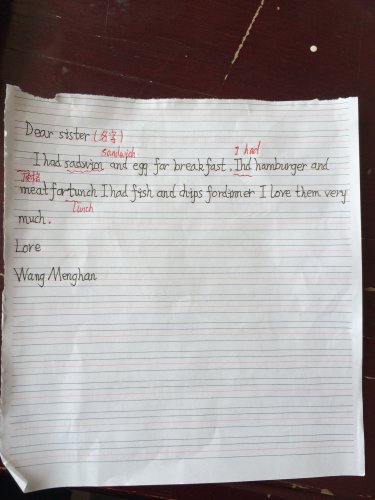 Dear sister (名字)
sandwich I had
I had sadwicn and egg for breakfast. Ihd hamburger and
meat for tunch I had fish and chips fordinner I love them very
lunch
much.
Lore
Wang Menghan